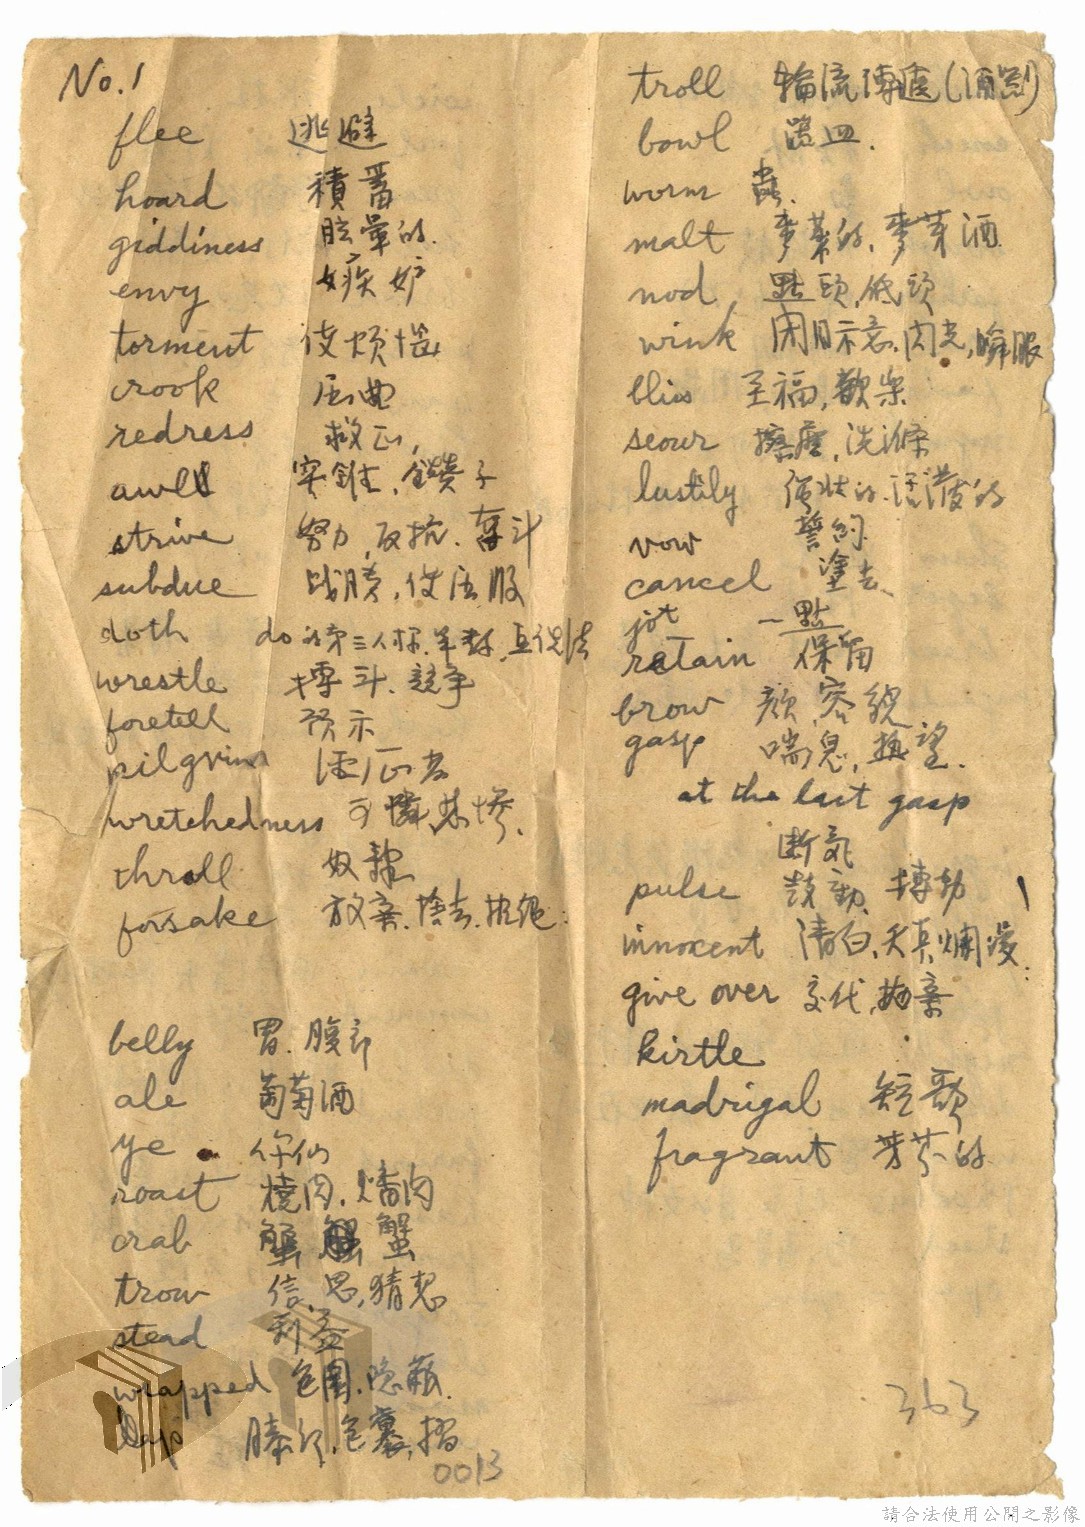 No.1
flee 逃避
hoard 積蓄
giddiness 眩暈的.
envy 嫉妒
torment 使煩惱
crook 屈曲
redress 救正,
awl 尖錐、鑽子
strive 努力,反抗、奮斗
subdue 战勝,使屈服
doth do 的第三人称、单数、直说法
wrestle 搏斗、競爭
foretell 预示
pilgrim
wretchedness 可憐、悲慘、
thrall 奴隸
forsake 放棄、捨去、拒绝
belly 胃、腹部
ale 葡萄酒
ye 你们
roast 燒肉、燔肉
crab 蟹
trow 信、思,猜想
stead 利益
wrapped 包圍、隐蔽.
lap 膝部、包裹,摺
0013
troll 輪流傳遞(酒劉)
bowl 器皿.
worm 蟲.
malt 麥芽酒
nod 點頭,低頭
wink 閉目示意,闪光,瞬眼
bliss 至福,歡樂
scour 擦磨,洗滌
lustily 强壯的、活潑的
vow 誓約
cancel 塗去、
jot 一點
retain 保留
brow 顔、容貌
gasp 喘息,熱望.
at the last gasp
断氣
pulse 鼓動、搏动
innocent 清白、天真爛漫
give over 交代,拋棄
kirtle
madrigal 短歌
fragrant 芳芬的
363
請合法使用公開之影像